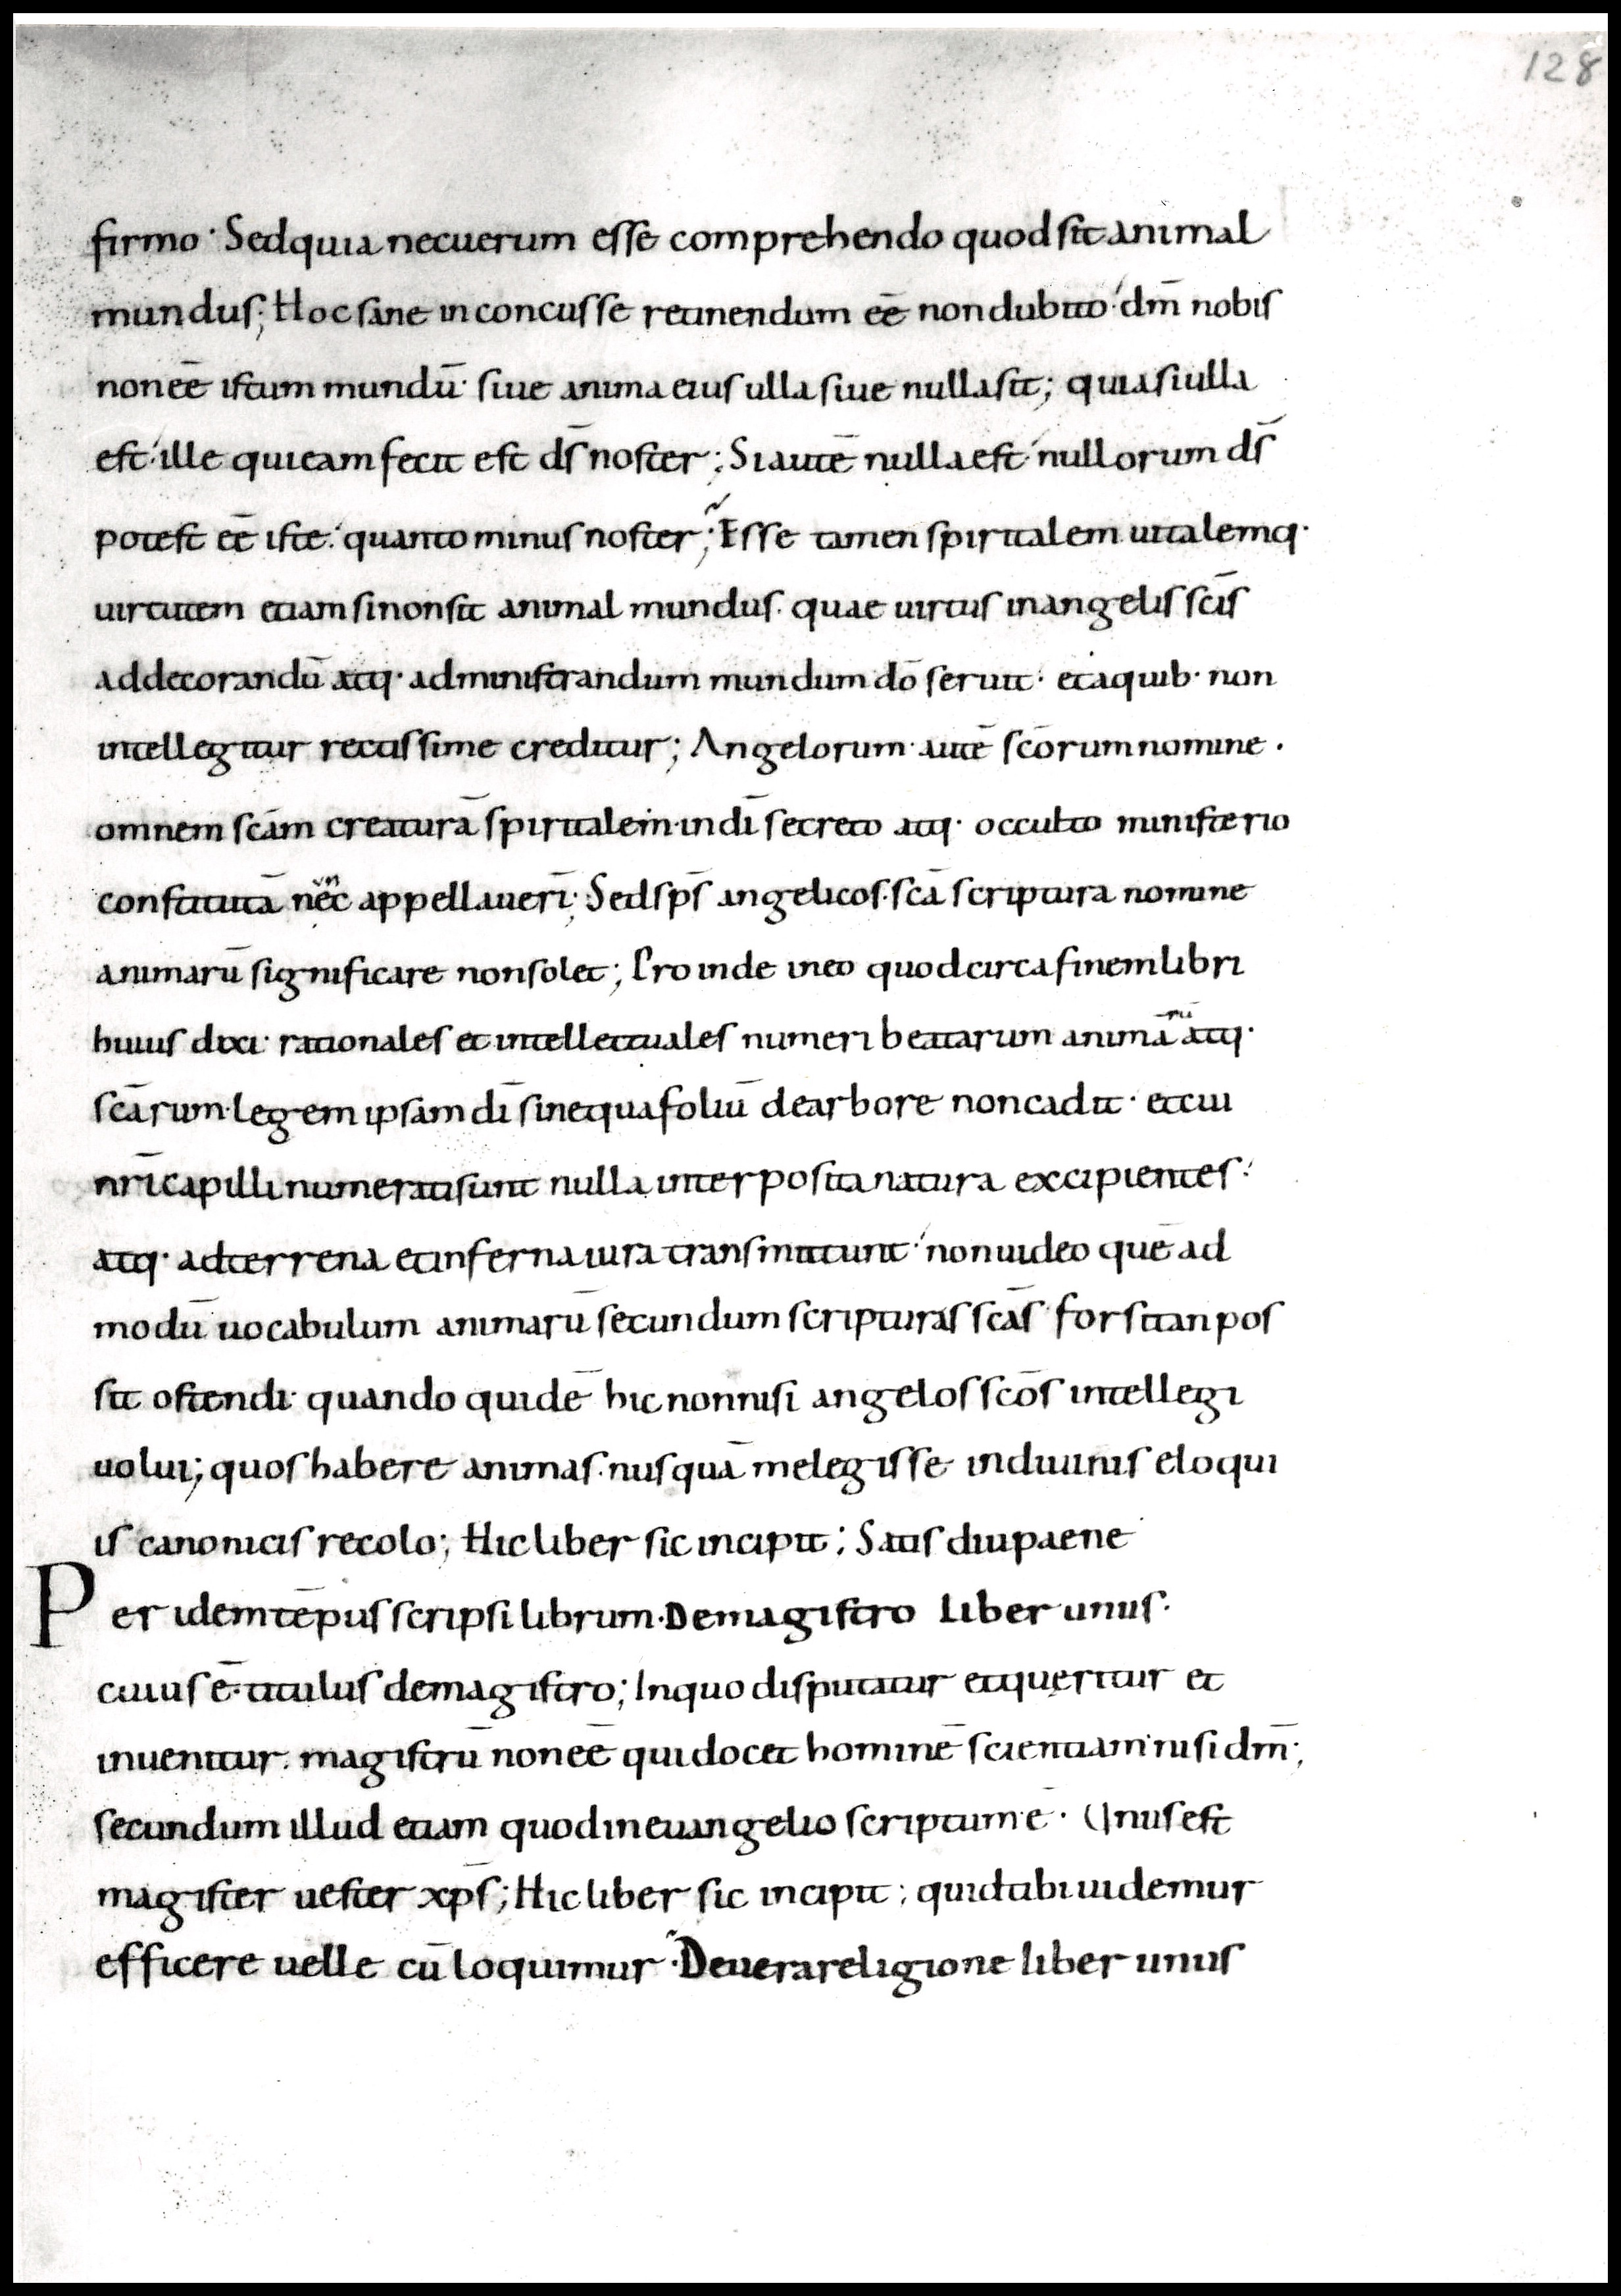 128
firmo· Sed quia nec uerum esse comprehendo quod sit animal
mundus; Hoc sane inconcusse retinendum eē non dubito·́ dm̄ nobis
non eē istum mundū· siue anima eius ulla siue nulla sit; quia si ulla
est·́ ille qui eam fecit est ds̄ noster; Si autē nulla est·́ nullorum ds̄
potest eē iste·́ quanto minus noster; Esse tamen spiritalem uitalemq·
uirtutem etiam si non sit animal mundus· quae uirtus in angelis scīs
ad decorandū atq· administrandum mundum dō seruit· et a quib· non
intellegitur rectissime creditur; Angelorum· autē scōrum nomine·
omnem scām creaturā spiritalem· in dī secreto atq· occulto ministerio
constitutā nēc appellauerī; Sed sps̄ angelicos· scā scriptura nomine
animarū significare non solet; Proinde in eo quod circa finem libri
huius dixi· rationales et intellectuales numeri beatarum animā rū atq·
scārum· legem ipsam dī sine qua foliū de arbore non cadit· et cui
nrī capilli numerati sunt nulla interposita natura excipientes·́
atq· ad terrena et inferna iura transmittunt·́ non uideo quē ad
modū uocabulum animarū secundum scripturas scās forsitan pos
sit ostendi· quando quidē hic non nisi angelos scōs intellegi
uolui; quos habere animas· nusquā me legisse in diuinis eloqui
is canonicis recolo; Hic liber sic incipit; Satis diu paene
Per idem tēpus scripsi librum· De magistro liber unus·
cuius ē· titulus de magistro; In quo disputatur et quęritur et
inuenitur· magistrū non eē qui docet hominē scientiam nisi dm̄;
secundum illud etiam quod in euangelio scriptum ē· Unus est
magister uester xps̄; Hic liber sic incipit; quid tibi uidemur
efficere uelle cū loquimur· De uera religione liber unus